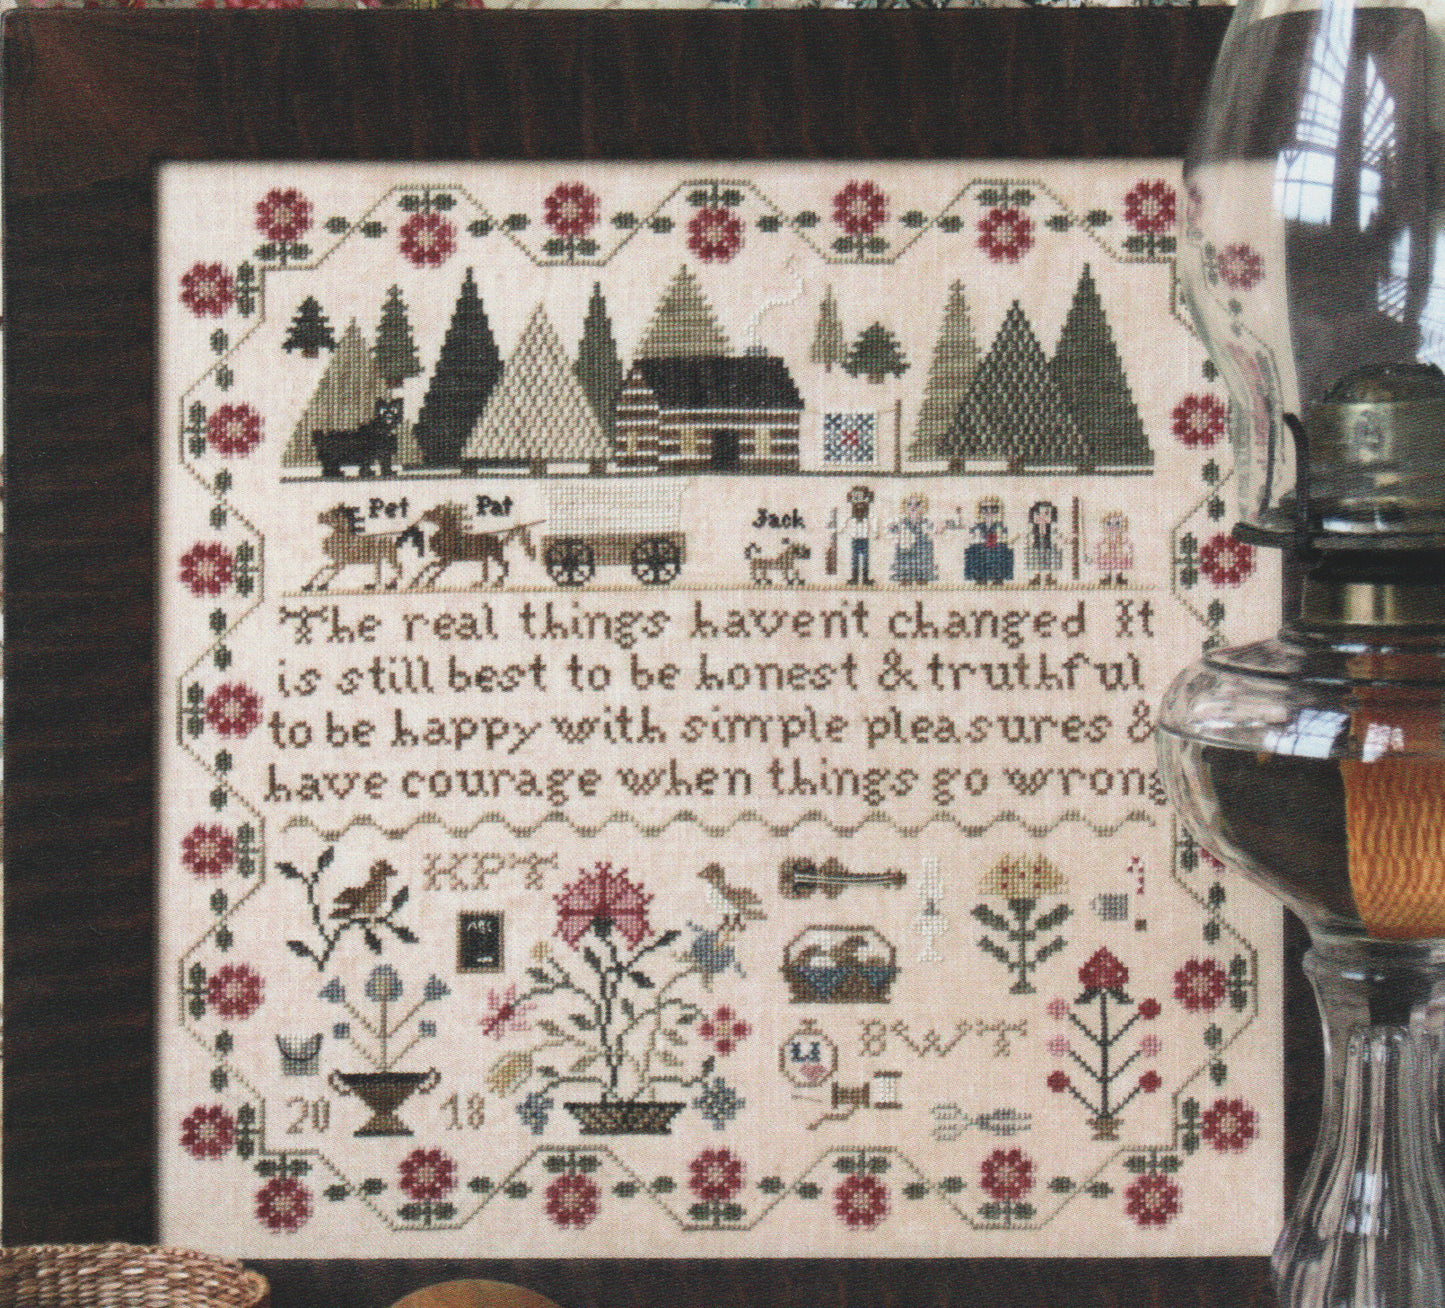 Pet Pat
Jack
The real things haven't changed It
is still best to be honest & truthful
to be happy with simple pleasures &
have courage when things go wrong
KPT
ABC
BWT
20 18